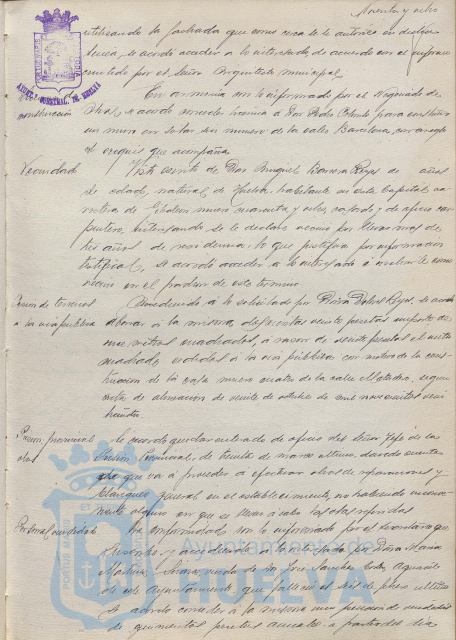 Noventa y ocho
utilizando la fachada que como cerca se le autorice en dicha
línea, se acordó acceder a lo interesado de acuerdo con el informe
emitido por el Señor Arquitecto municipal.
AYUNT. CONSTNAL. DE HUELVA
construcción
En armonía con lo informado por el Negociado de
se acordó conceder licencia a Don Pedro para construir
un muro en solar sin número de la calle Barcelona, con arreglo
al croquis que acompaña.
Vecindad
Vista escrito de Don Miguel Barrera Reyes de años
de edad, natural de Huelva, habitante en esta Capital, ca-
rretera de Gibraleon número cuarenta y ocho, casado, y de oficio car-
pintero, interesando se le declare vecino por llevar mas de
diez años de residencia, lo que justifica por información
testifical, se acordó acceder a lo interesado e incluirle como
vecino en el padron de este término.
de terrenos
a la vía pública
Accediendo a lo solicitado por Reyes, se acordó
abonar a la misma, doscientas veinte pesetas importe de
once metros cuadrados, a razon de veinte pesetas el metro
cuadrado, cedidos a la vía pública con motivo de la cons-
trucción de la casa número cuatro de la calle Matadero, segun
acta de alineación de veinte de octubre de mil novecientos vein-
Prision provincial
obras
Se acordó quedar enterado de oficio del Señor Jefe de la
Prision Provincial, de treinta de marzo ultimo, dando cuenta
de que va a proceder a efectuar obras de reparaciones y
blanqueo general en el establecimiento, no habiendo inconve-
niente alguno en que se lleven a cabo las obras referidas.
Personal, viudedad
De conformidad con lo informado por el Secretario
y accediendo a lo solicitado por Doña Maria
Martin viuda de Don José Sanchez
de este Ayuntamiento, que falleció el seis de ultimo
se acordó conceder a la misma una pension de viudedad
de quinientas pesetas anuales a partir del día
Ayuntamiento de
HUELVA